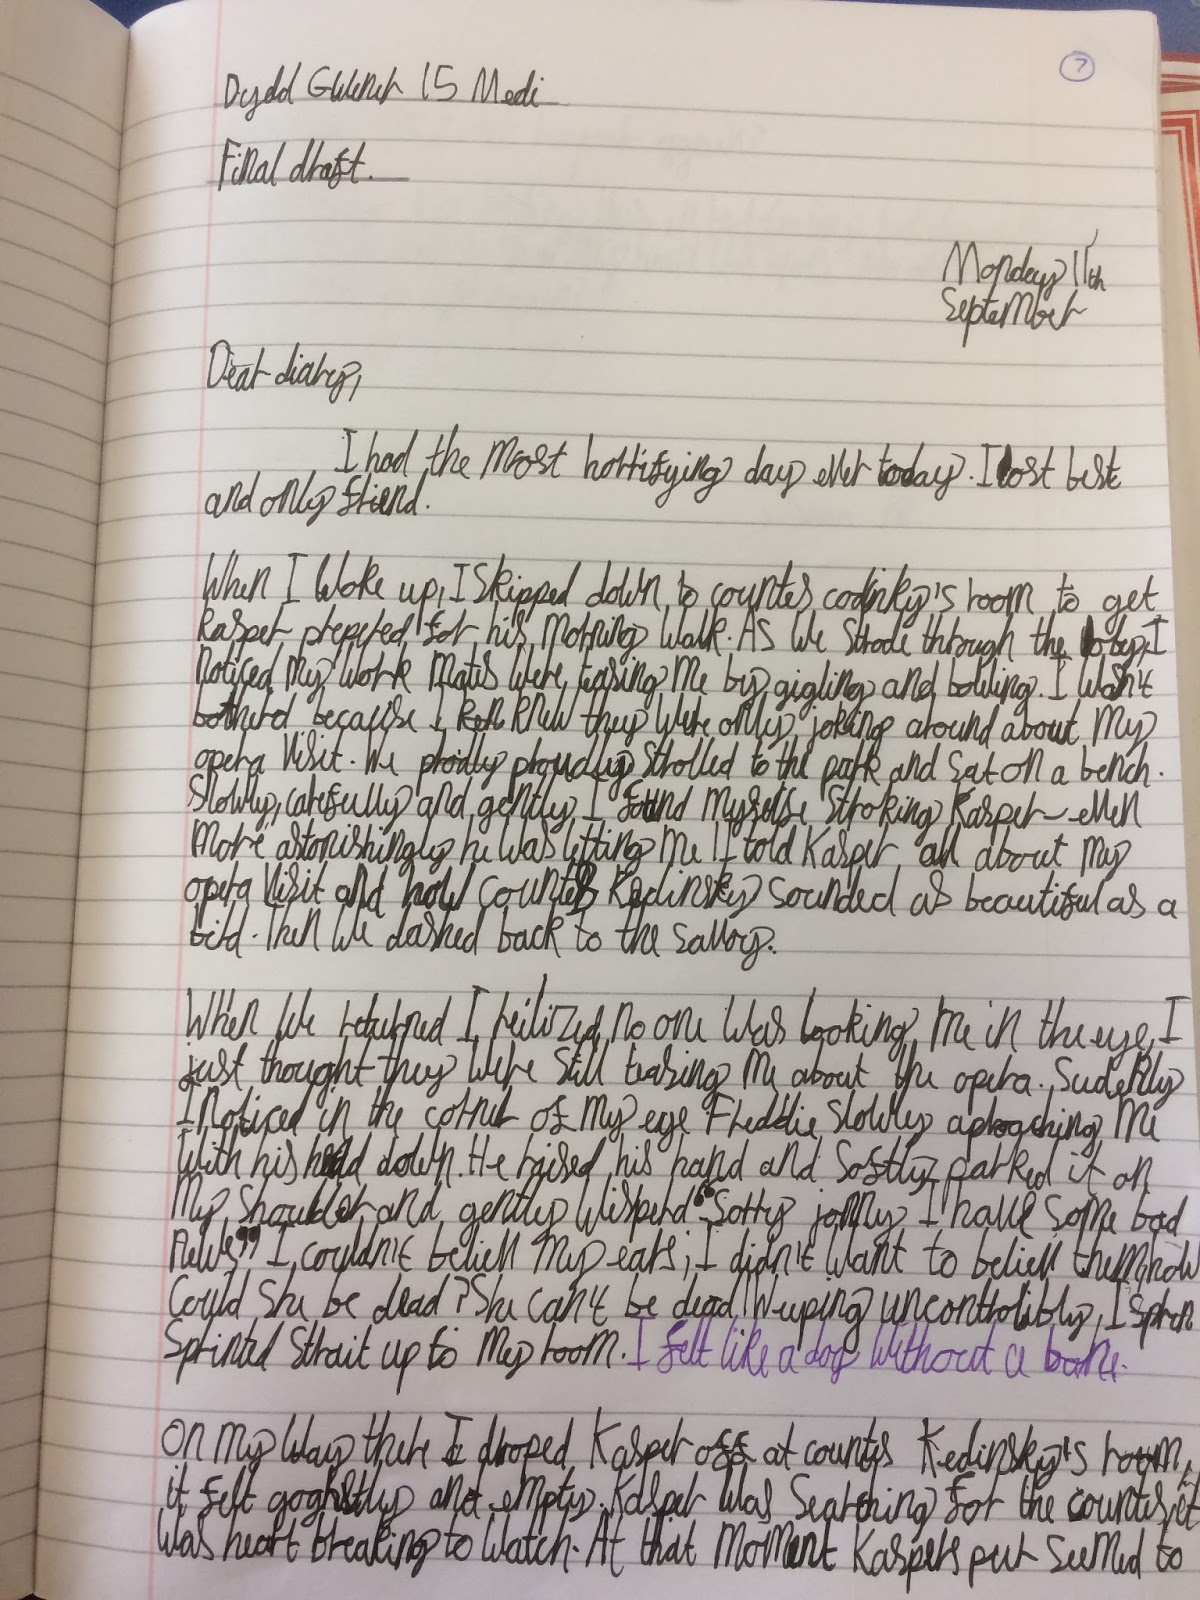 7
Dydd Gwener 15 Medi
Final draft.
Monday 11th
September
Dear diary,
I had the most horrifying day ever today. I lost best
and only friend.
When I woke up, I skipped down to countes codinky's room to get
Kasper prepered for his morning walk. As we strode through the lobey, I
noticed my work mates were teasing me by gigling and bowing. I wasn't
botherd because I knew they were only joking around about my
opera visit. We proudly strolled to the park and sat on a bench.
Slowly, carefully and gently I found myselfe stroking Kasper - even
more astonishingly he was letting me! I told Kasper all about my
opera visit and how countes Kedinsky sounded as beautiful as a
bird. Then we dashed back to the savoy.
When we returned I reilized no one was looking me in the eye, I
just thought they were still teasing me about the opera. Sudenly
I noticed in the corner of my eye Freddie slowly aproaching me
with his head down. He raised his hand and softly parked it on
my shoulder and gently wisperd "Sorry jonny I have some bad
news" I couldn't believ my ears; I didn't want to believ them, how
could she be dead? She can't be dead! Weeping uncontrolibly, I
sprinted strait up to my room. I felt like a dog without a bone.
On my way there I droped Kasper off at countes Kedinsky's room,
it felt goghstly and empty. Kasper was searching for the countes, it
was heart breaking to watch. At that moment Kaspers purr seemed to